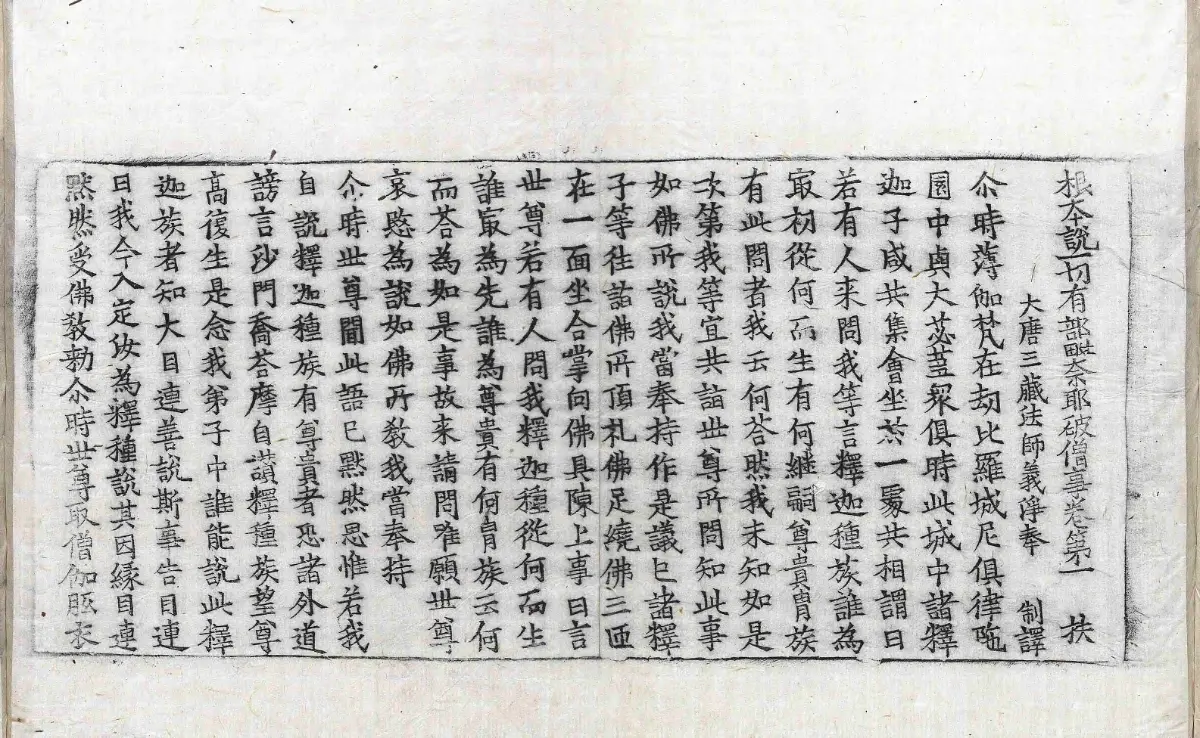 根本說一切有部毗奈耶破僧事卷第一 扶
大唐三藏法師義淨奉 制譯
尒時薄伽梵在劫比羅城尼俱律陁
園中與大苾蒭衆俱時此城中諸釋
迦子咸共集會坐於一處共相謂曰
若有人来問我等言釋迦種族誰為
冣初從何而生有何継嗣尊貴胄族
有此問者我云何荅然我未知如是
次第我等宜共詣世尊所問知此事
如佛所說我當奉持作是議已諸釋
子等往詣佛所頂礼佛足繞佛三匝
在一面坐合掌向佛具陳上事曰言
世尊若有人問我釋迦種從何而生
誰冣為先誰為尊貴有何胄族云何
而荅為如是事故来請問唯願世尊
哀愍為說如佛所教我當奉持
尒時世尊聞此語已默然思惟若我
自說釋迦種族有尊貴者恐諸外道
謗言沙門喬荅摩自讃釋種族望尊
高復生是念我弟子中誰能說此釋
迦族者知大目連善說斯事告目連
曰我今入定汝為釋種說其因縁目連
黙然受佛教勑尒時世尊取僧伽胝衣